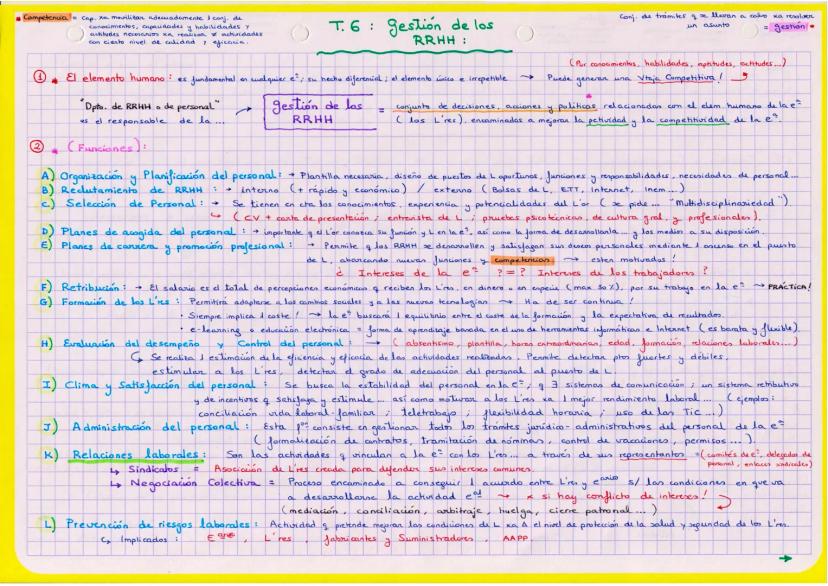 Competencia = Cap. xa movilizar adecuadamente 1 conj. de
conocimientos, capacidades y habilidades y
actitudes necesarias xa realizar ≠ actividades
con cierto nivel de calidad y eficacia.
T.6 : Gestión de los
RRHH :
Conj. de trámites q se llevan a cabo xa resolver
un asunto = gestión
(Por conocimientos, habilidades, aptitudes, actitudes...)
① • El elemento humano : es fundamental en cualquier eª ; su hecho diferencial ; el elemento único e irrepetible → Puede generar una Vtaja Competitiva !
"Dpto. de RRHH o de personal"
es el responsable de la ...
gestión de los
RRHH
= conjunto de decisiones, acciones y políticas relacionadas con el elem. humano de la eª
( los L'res ), encaminadas a mejorar la pctividad y la competitividad de la eª.
② • ( Funciones ) :
A) Organización y Planificación del personal : → Plantilla necesaria, diseño de puestos de L oportunos, funciones y responsabilidades, necesidades de personal ...
B) Reclutamiento de RRHH : → interno (+ rápido y económico) / externo ( Bolsas de L, ETT, Internet, Inem ... )
C) Selección de Personal : → Se tienen en cta los conocimientos, experiencia y potencialidades del L'or ( se pide ... "Multidisciplinariedad" ).
↳ ( CV + carta de presentación ; entrevista de L ; pruebas psicotécnicas, de cultura gral. y profesionales ).
D) Planes de acogida del personal : → importante q el L'or conozca su función y L en la eª, así como la forma de desarrollarla ... y los medios a su disposición.
E) Planes de carrera y promoción profesional : → Permite q los RRHH se desarrollen y satisfagan sus deseos personales mediante 1 ascenso en el puesto
de L, abarcando nuevas funciones y competencias → estén motivados !
¿ Intereses de la eª ? = ? Intereses de los trabajadores ?
F) Retribución : → El salario es el total de percepciones económicas q reciben los L'res, en dinero o en especie (max 30 %), por su trabajo en la eª → PRÁCTICA !
G) Formación de los L'res : Permitirá adaptarse a los cambios sociales y a las nuevas tecnologías → Ha de ser continua !
• Siempre implica 1 coste ! → la eª buscará 1 equilibrio entre el coste de la formación y la expectativa de resultados.
• e-learning o educación electrónica = forma de aprendizaje basada en el uso de herramientas informáticas e Internet ( es barata y flexible ).
H) Evaluación del desempeño y Control del personal : → ( absentismo, plantilla, horas extraordinarias, edad, formación, relaciones laborales ... )
↳ Se realiza 1 estimación de la eficiencia y eficacia de las actividades realizadas. Permite detectar ptos fuertes y débiles,
estimular a los L'res, detectar el grado de adecuación del personal al puesto de L.
I) Clima y Satisfacción del personal : Se busca la estabilidad del personal en la eª, q ∃ sistemas de comunicación ; un sistema retributivo
y de incentivos q satisfaga y estimule ... así como motivar a los L'res xa 1 mejor rendimiento laboral ... ( ejemplos :
conciliación vida laboral-familiar ; teletrabajo ; flexibilidad horaria ; uso de las TIC ... )
J) Administración del personal : Esta fº consiste en gestionar todos los trámites jurídico-administrativos del personal de la eª
( formalización de contratos, tramitación de nóminas, control de vacaciones, permisos ... ).
K) Relaciones laborales : Son las actividades q vinculan a la eª con los L'res ... a través de sus representantes = ( comités de eª, delegados de
personal, enlaces sindicales )
↳ Sindicatos = Asociación de L'res creada para defender sus intereses comunes.
↳ Negociación Colectiva = Proceso encaminado a conseguir 1 acuerdo entre L'res y eario s/ las condiciones en que va
a desarrollarse la actividad eal → x si hay conflicto de intereses !
( mediación, conciliación, arbitraje, huelga, cierre patronal ... )
L) Prevención de riesgos laborales : Actividad q pretende mejorar las condiciones de L xa Δ el nivel de protección de la salud y seguridad de los L'res.
↳ Implicados : Eario, L'res, fabricantes y Suministradores, AAPP.